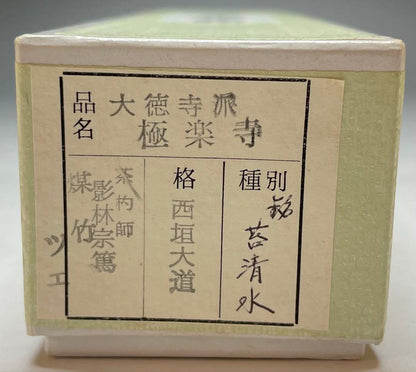 品名
大徳寺派
極楽寺
種別
銘
苔清水
格
西垣大道
茶杓師
影林宗篤
煤竹
ツエ